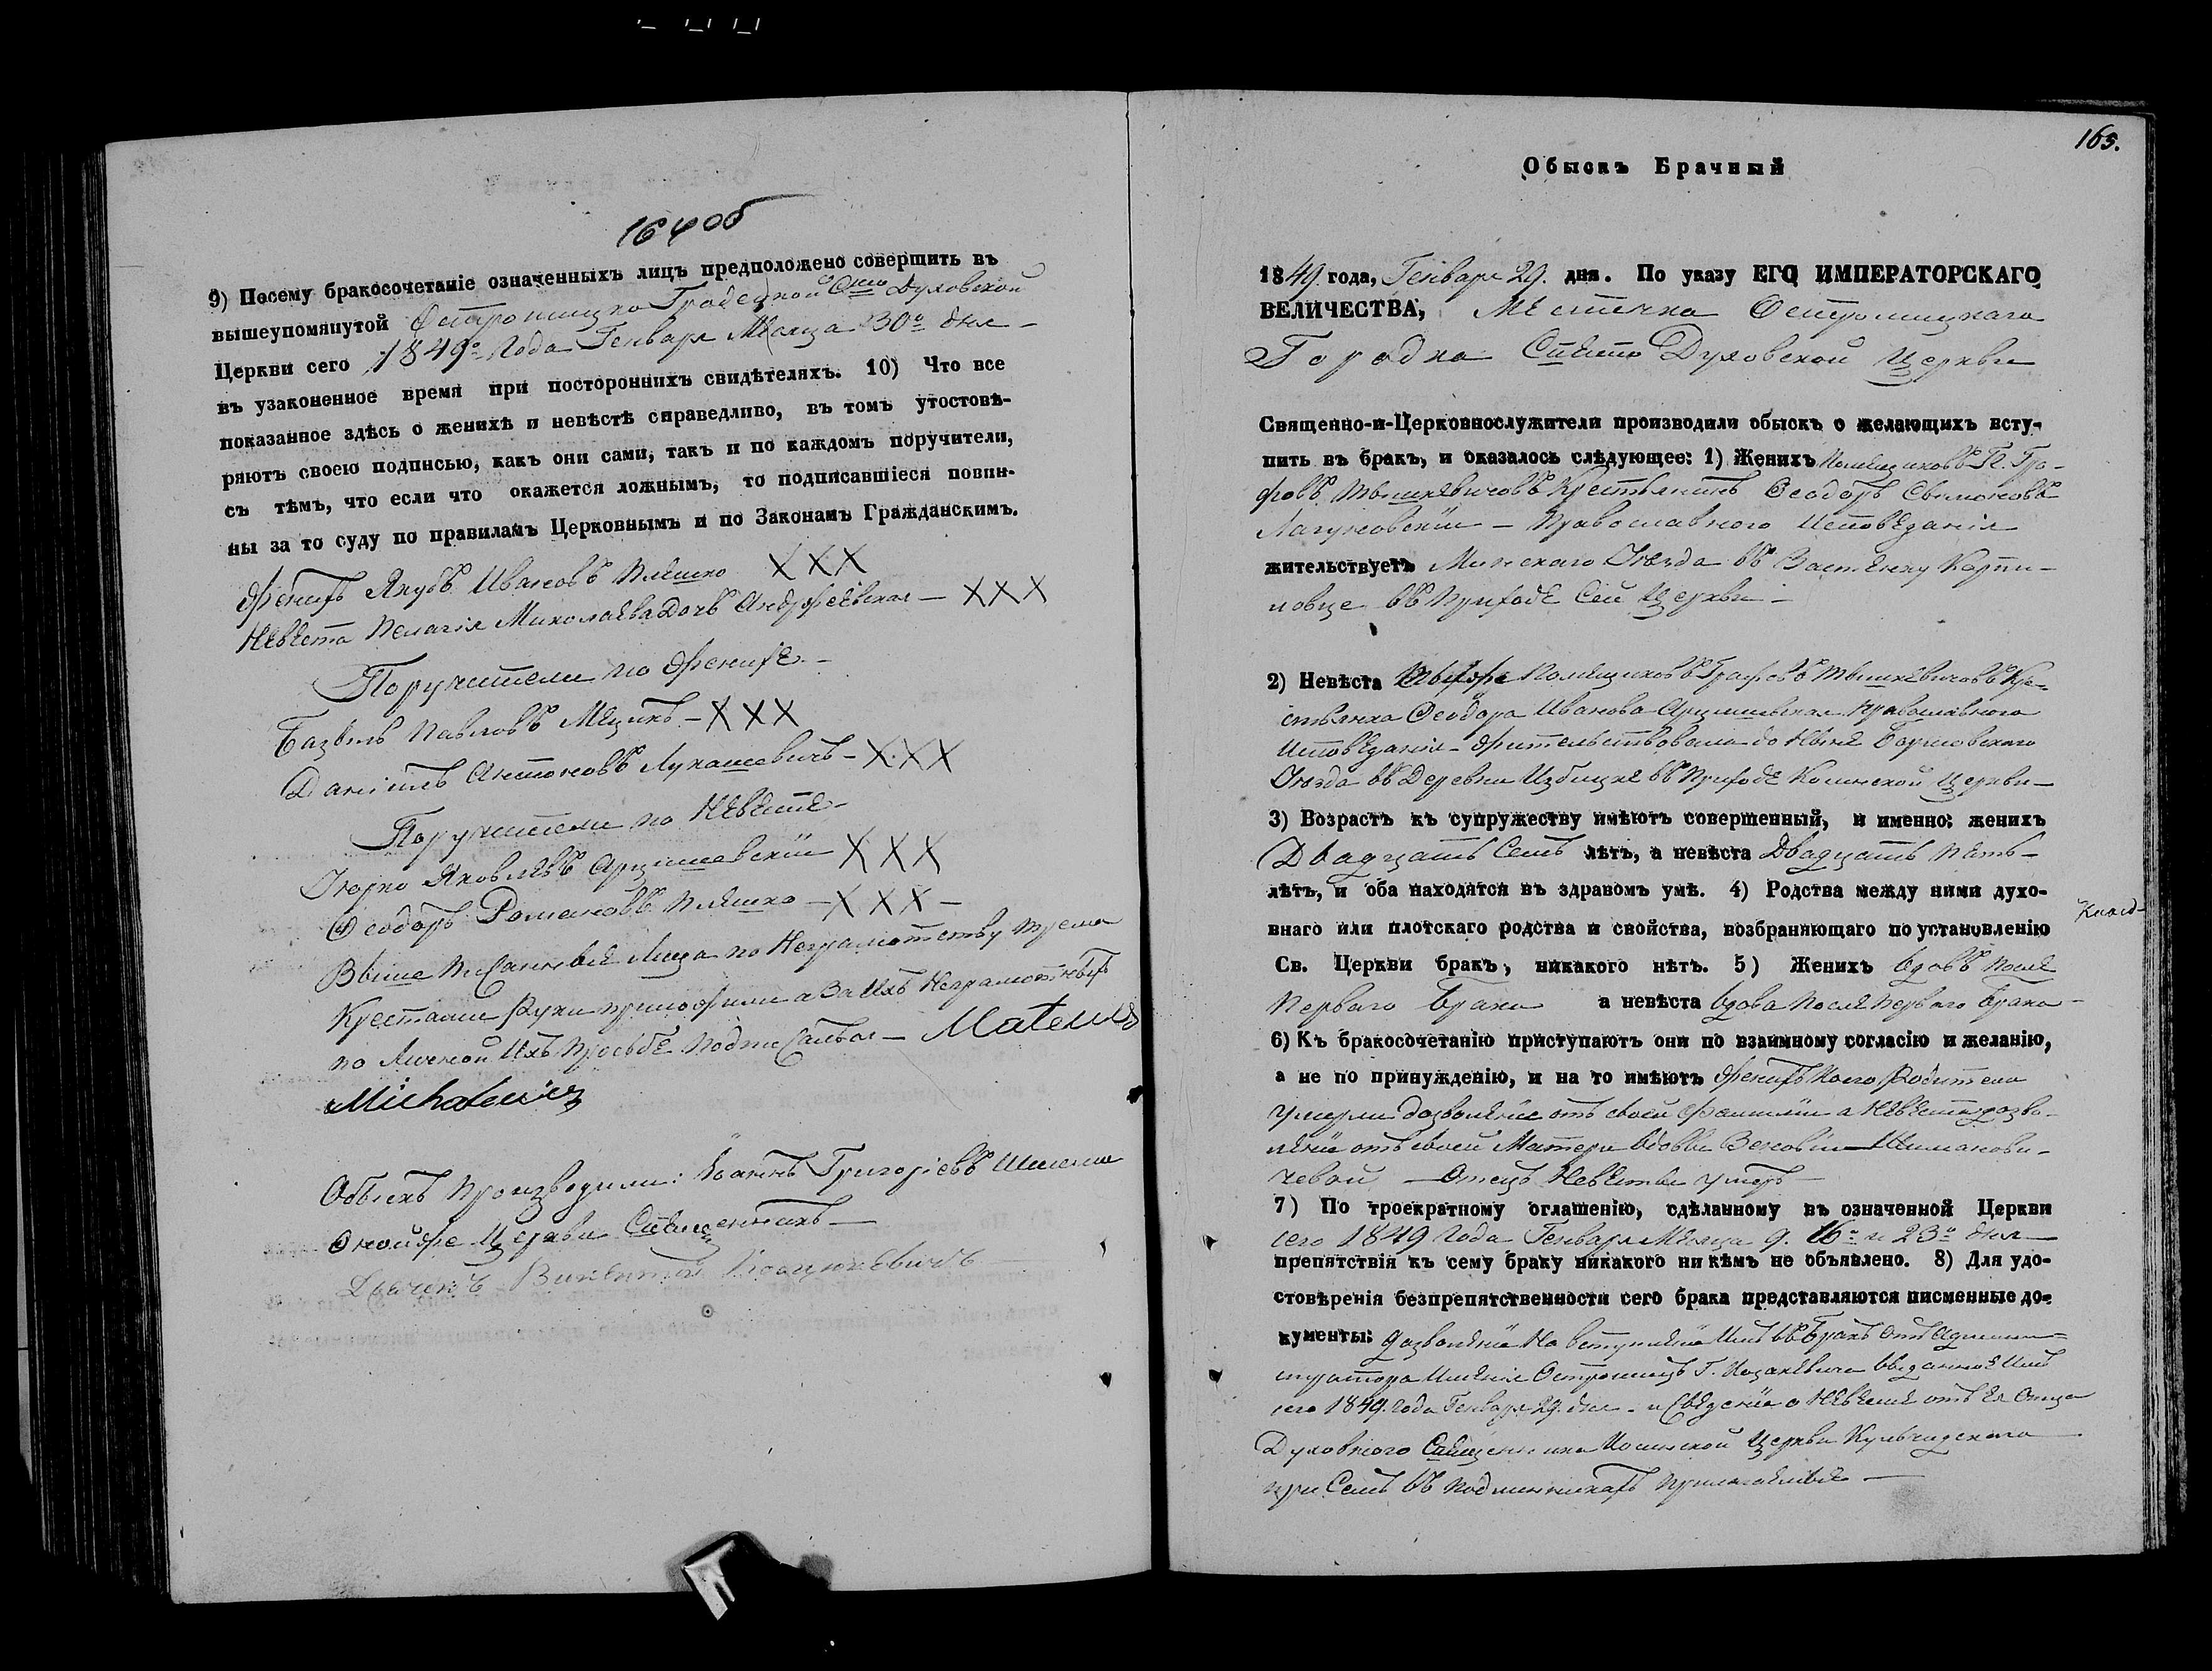 164об
9) Посему бракосочетаніе означенныхъ лицъ предположено совершить въ
вышеупомянутой Остромицко Градецкой Свято Духовской
Церкви сего 1849го Года Генваря Мѣсяца 30го дня
въ узаконенное время при постороннихъ свидѣтеляхъ. 10) Что все
показанное здѣсь о женихѣ и невѣстѣ справедливо, въ томъ утостовѣ-
ряютъ своею подписью, какъ они сами, такъ и по каждомъ поручители,
съ тѣмъ, что если что окажется ложнымъ, то подписавшіеся повин-
ны за то суду по правиламъ Церковнымъ и по Законамъ Гражданскимъ.
Женихъ Якубъ Ивановъ Плешко XXX
Невѣста Пелагія Миколаева Дочь Андржеевская — XXX
Поручители по Женихѣ —
Базыль Павловъ Мѣцикъ — XXX
Даніилъ Антоновъ Лукашевичъ — XXX
Поручители по Невѣстѣ —
Юрко Яковлевъ Арцишевскій XXX
Феодоръ Романовъ Плешко — XXX —
Выше Писанные Лица по Неграмотству трема
Крестами Руки приложили а За ихъ Неграмотныхъ
по Личной ихъ Просьбѣ Подписался — Mateusz
Michalewicz
Обыскъ Производили: Іоаннъ Григоріевъ
Церкви Священникъ —
Дьячекъ Викентій
165.
Обыскъ Брачный
1849 года, Генваря 29. дня. По указу ЕГО ИМПЕРАТОРСКАГО
ВЕЛИЧЕСТВА, Мѣстечка Остромицкаго
Городка Свято Духовской Церкви
Священно-и-Церковнослужители производили обыскъ о желающихъ всту-
пить въ бракъ, и оказалось слѣдующее: 1) Женихъ Помѣщиковъ Г. Гра-
фовъ Тышкевичовъ Крестьянинъ Феодоръ Сымоновъ
Лагуновскій — Православного Исповѣданія
жительствуетъ Минскаго Уѣзда въ Застѣнку Карпи-
ловце въ Приходѣ Сей Церкви —
2) Невѣста Помѣщиковъ Графовъ Тышкевичовъ Кре-
стьянка Феодора Иванова Арцишевская Православного
Исповѣданія — Жительствовала до Нынѣ Борисовскаго
Уѣзда въ Деревни Избицке въ Приходѣ Косинской Церкви —
3) Возрастъ къ супружеству имѣютъ совершенный, и именно: женихъ
Двадцать Семь лѣтъ, а невѣста Двадцать Пять —
лѣтъ, и оба находятся въ здравомъ умѣ. 4) Родства между ними духо-
внаго или плотскаго родства и свойства, возбраняющаго по установленію
Св. Церкви бракъ, никакого нѣтъ. 5) Женихъ Вдовъ После
Перваго Брака а невѣста Вдова После Первого Брака —
6) Къ бракосочетанію приступаютъ они по взаимному согласію и желанію,
а не по принужденію, и на то имѣютъ Женихъ Коего Родители
умерли дозволеніе отъ своей Фамиліи а Невѣста дозво-
леніе отъ своей Матери Вдовы Зеновіи Шиманови-
чевой — Отецъ Невѣсты умеръ —
7) По троекратному оглашенію, сдѣланному въ означенной Церкви
сего 1849 Года Генваря Мѣсяца 9. 16го и 23го дня —
препятствія къ сему браку никакого ни кѣмъ не объявлено. 8) Для удо-
стовѣренія безпрепятственности сего брака представляются писменные до-
кументы: дозволеніе На вступленіе Имъ въ Бракъ отъ Админи-
стратора Имѣнія Остромицъ Г. выданное Имъ
сего 1849. Года Генваря 29. дня — и Свѣденіе о Невѣстѣ отъ Ея Отца
Духовного Священника Косинской Церкви
при Семъ въ Подлинникахъ